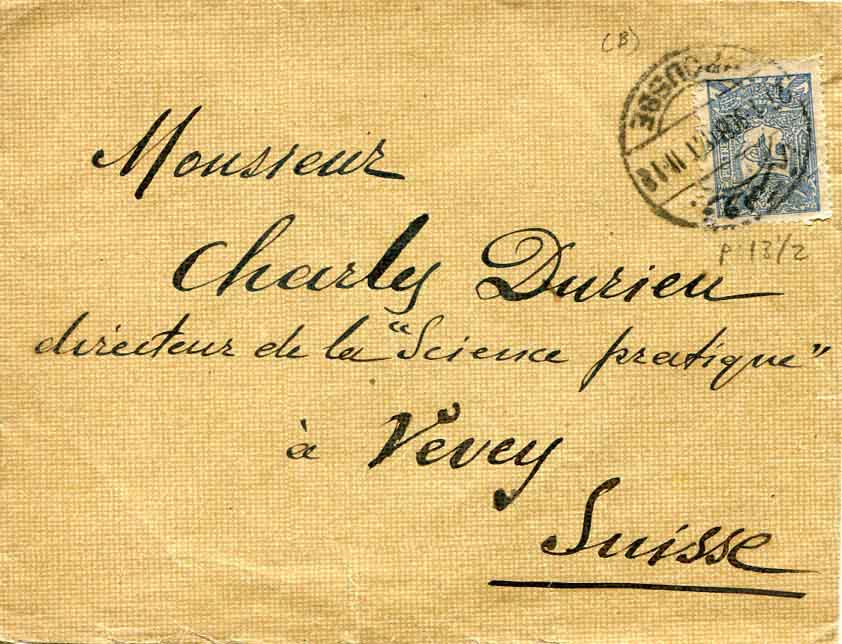 (B)
Monsieur
Charly Durieu
directeur de la "Science pratique"
à Vevey
Suisse
p. 13/2
PIASTRE
11-18